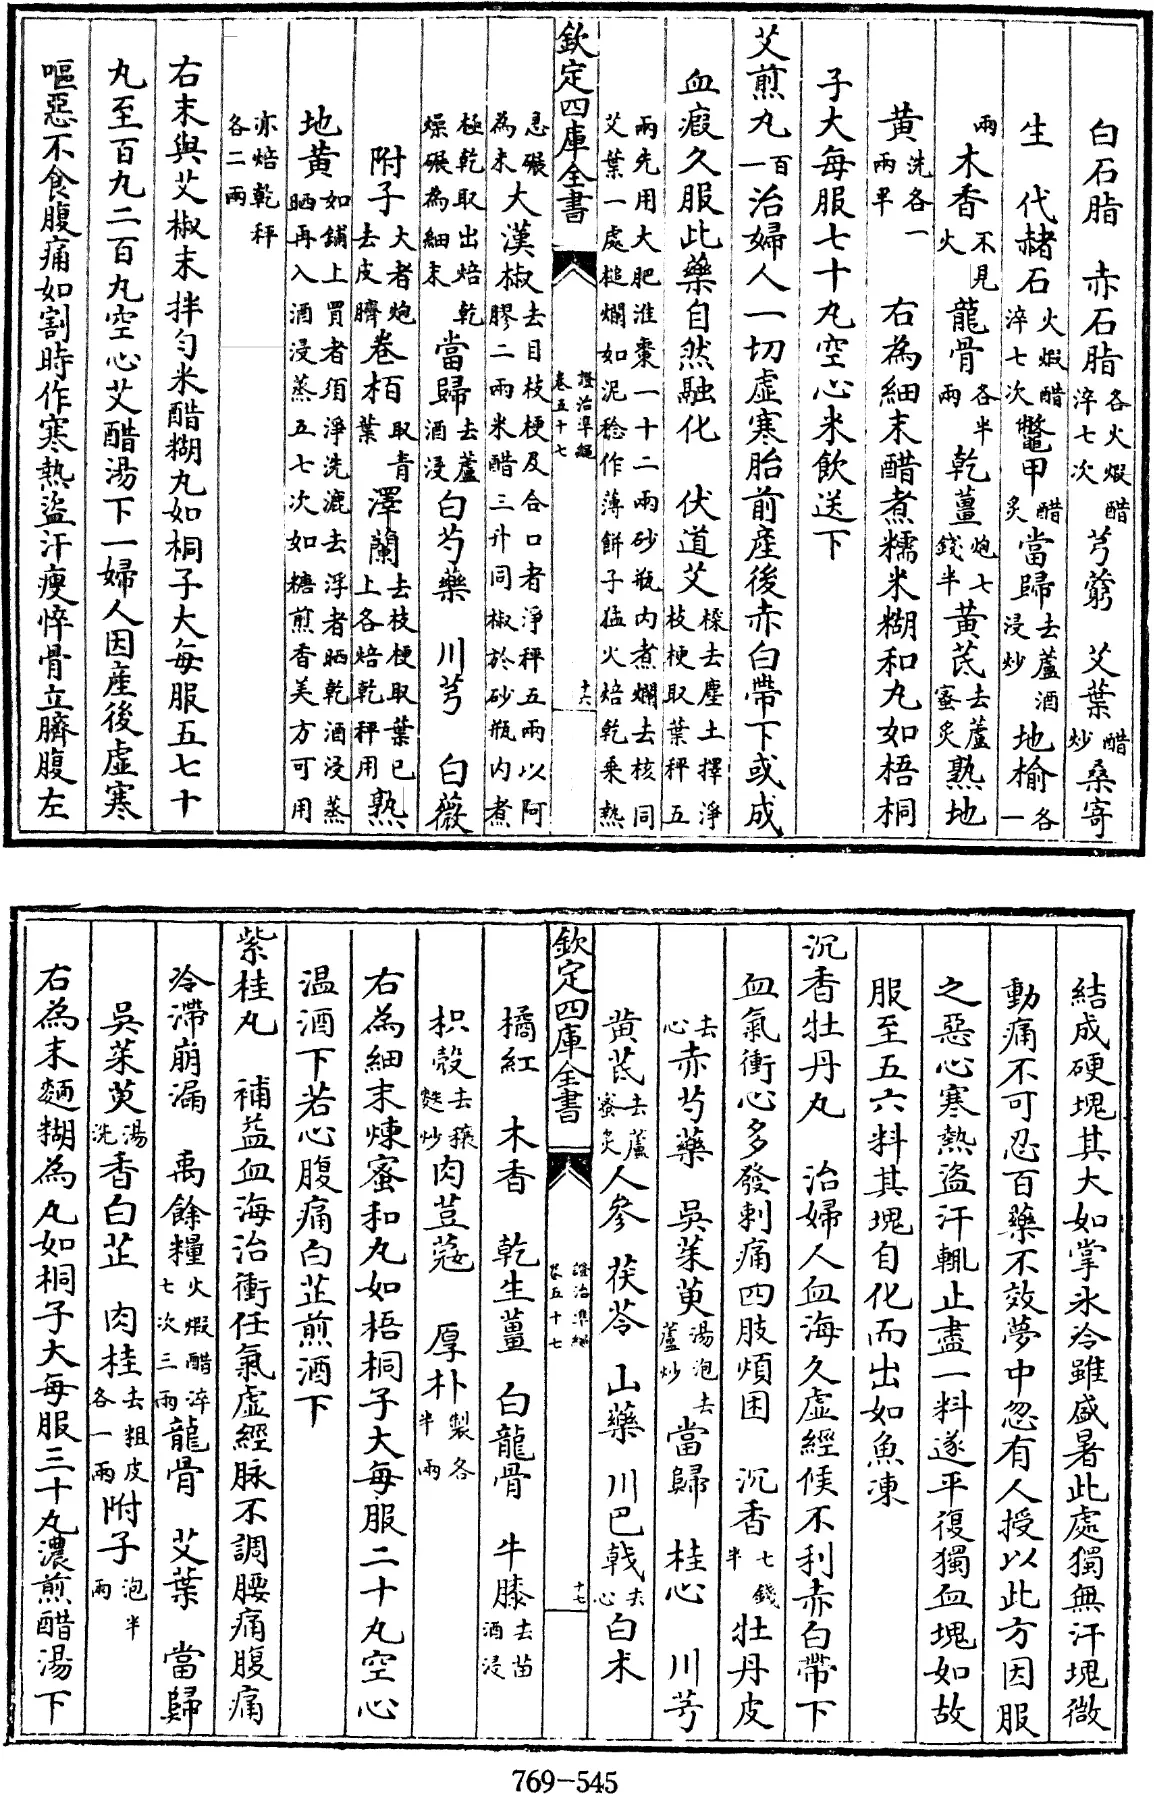 白石脂　赤石脂各火煅醋淬七次芎藭　艾葉醋炒桑寄
生　代赭石火煅醋淬七次鼈甲醋炙當歸去蘆酒浸炒地榆各一
兩木香不見火龍骨各半兩乾薑炮七錢半黄芪去蘆蜜炙熟地
黄洗各一兩半　右為細末醋煮糯米糊和丸如梧桐
子大每服七十丸空心米飲送下
艾煎丸百一治婦人一切虚寒胎前産後赤白帶下或成
血瘕久服此藥自然融化　伏道艾槎去塵土擇淨枝梗取葉秤五
兩先用大肥淮棗一十二兩砂瓶内煮爛去核同艾葉一處槌爛如泥稔作薄餅子猛火焙乾乗熱
欽定四庫全書
證治準繩
卷五十七
十六
急碾為末大漢椒去目枝梗及合口者淨秤五兩以阿膠二兩米醋三升同椒於砂瓶内煮
極乾取出焙乾燥碾為細末當歸去蘆酒浸白芍藥　川芎　白薇
附子大者炮去皮臍卷栢葉取青澤蘭去枝梗取葉已上各焙乾秤用熟
地黄如鋪上買者須淨洗漉去浮者晒乾酒浸蒸晒再入酒浸蒸五七次如糖煎香美方可用
亦焙乾秤各二兩
右末與艾椒末拌勻米醋糊丸如桐子大每服五七十
丸至百丸二百丸空心艾醋湯下一婦人因産後虚寒
嘔惡不食腹痛如割時作寒熱盜汗瘦悴骨立臍腹左
結成硬塊其大如掌氷冷雖盛暑此處獨無汗塊微
動痛不可忍百藥不效夢中忽有人授以此方因服
之惡心寒熱盜汗輒止盡一料遂平復獨血塊如故
服至五六料其塊自化而出如魚凍
沉香牡丹丸　治婦人血海久虚經候不利赤白帶下
血氣衝心多發刺痛四肢煩困　沉香七錢半牡丹皮
去心赤芍藥　吳茱萸湯泡去蘆炒當歸　桂心　川芎
黄芪去蘆蜜炙人參　茯苓　山藥　川巴戟去心白术
欽定四庫全書
證治準繩
卷五十七
十七
橘紅　木香　乾生薑　白龍骨　牛膝去苗酒浸
枳殻去穰麩炒肉荳蔻　厚朴製各半兩
右為細末煉蜜和丸如梧桐子大每服二十丸空心
温酒下若心腹痛白芷煎酒下
紫桂丸　補益血海治衝任氣虚經脉不調腰痛腹痛
冷滯崩漏　禹餘糧火煅醋淬七次三兩龍骨　艾葉　當歸
吳茱萸湯洗香白芷　肉桂去粗皮各一兩附子泡半兩
右為末麪糊為丸如桐子大每服三十丸濃煎醋湯下
769-545